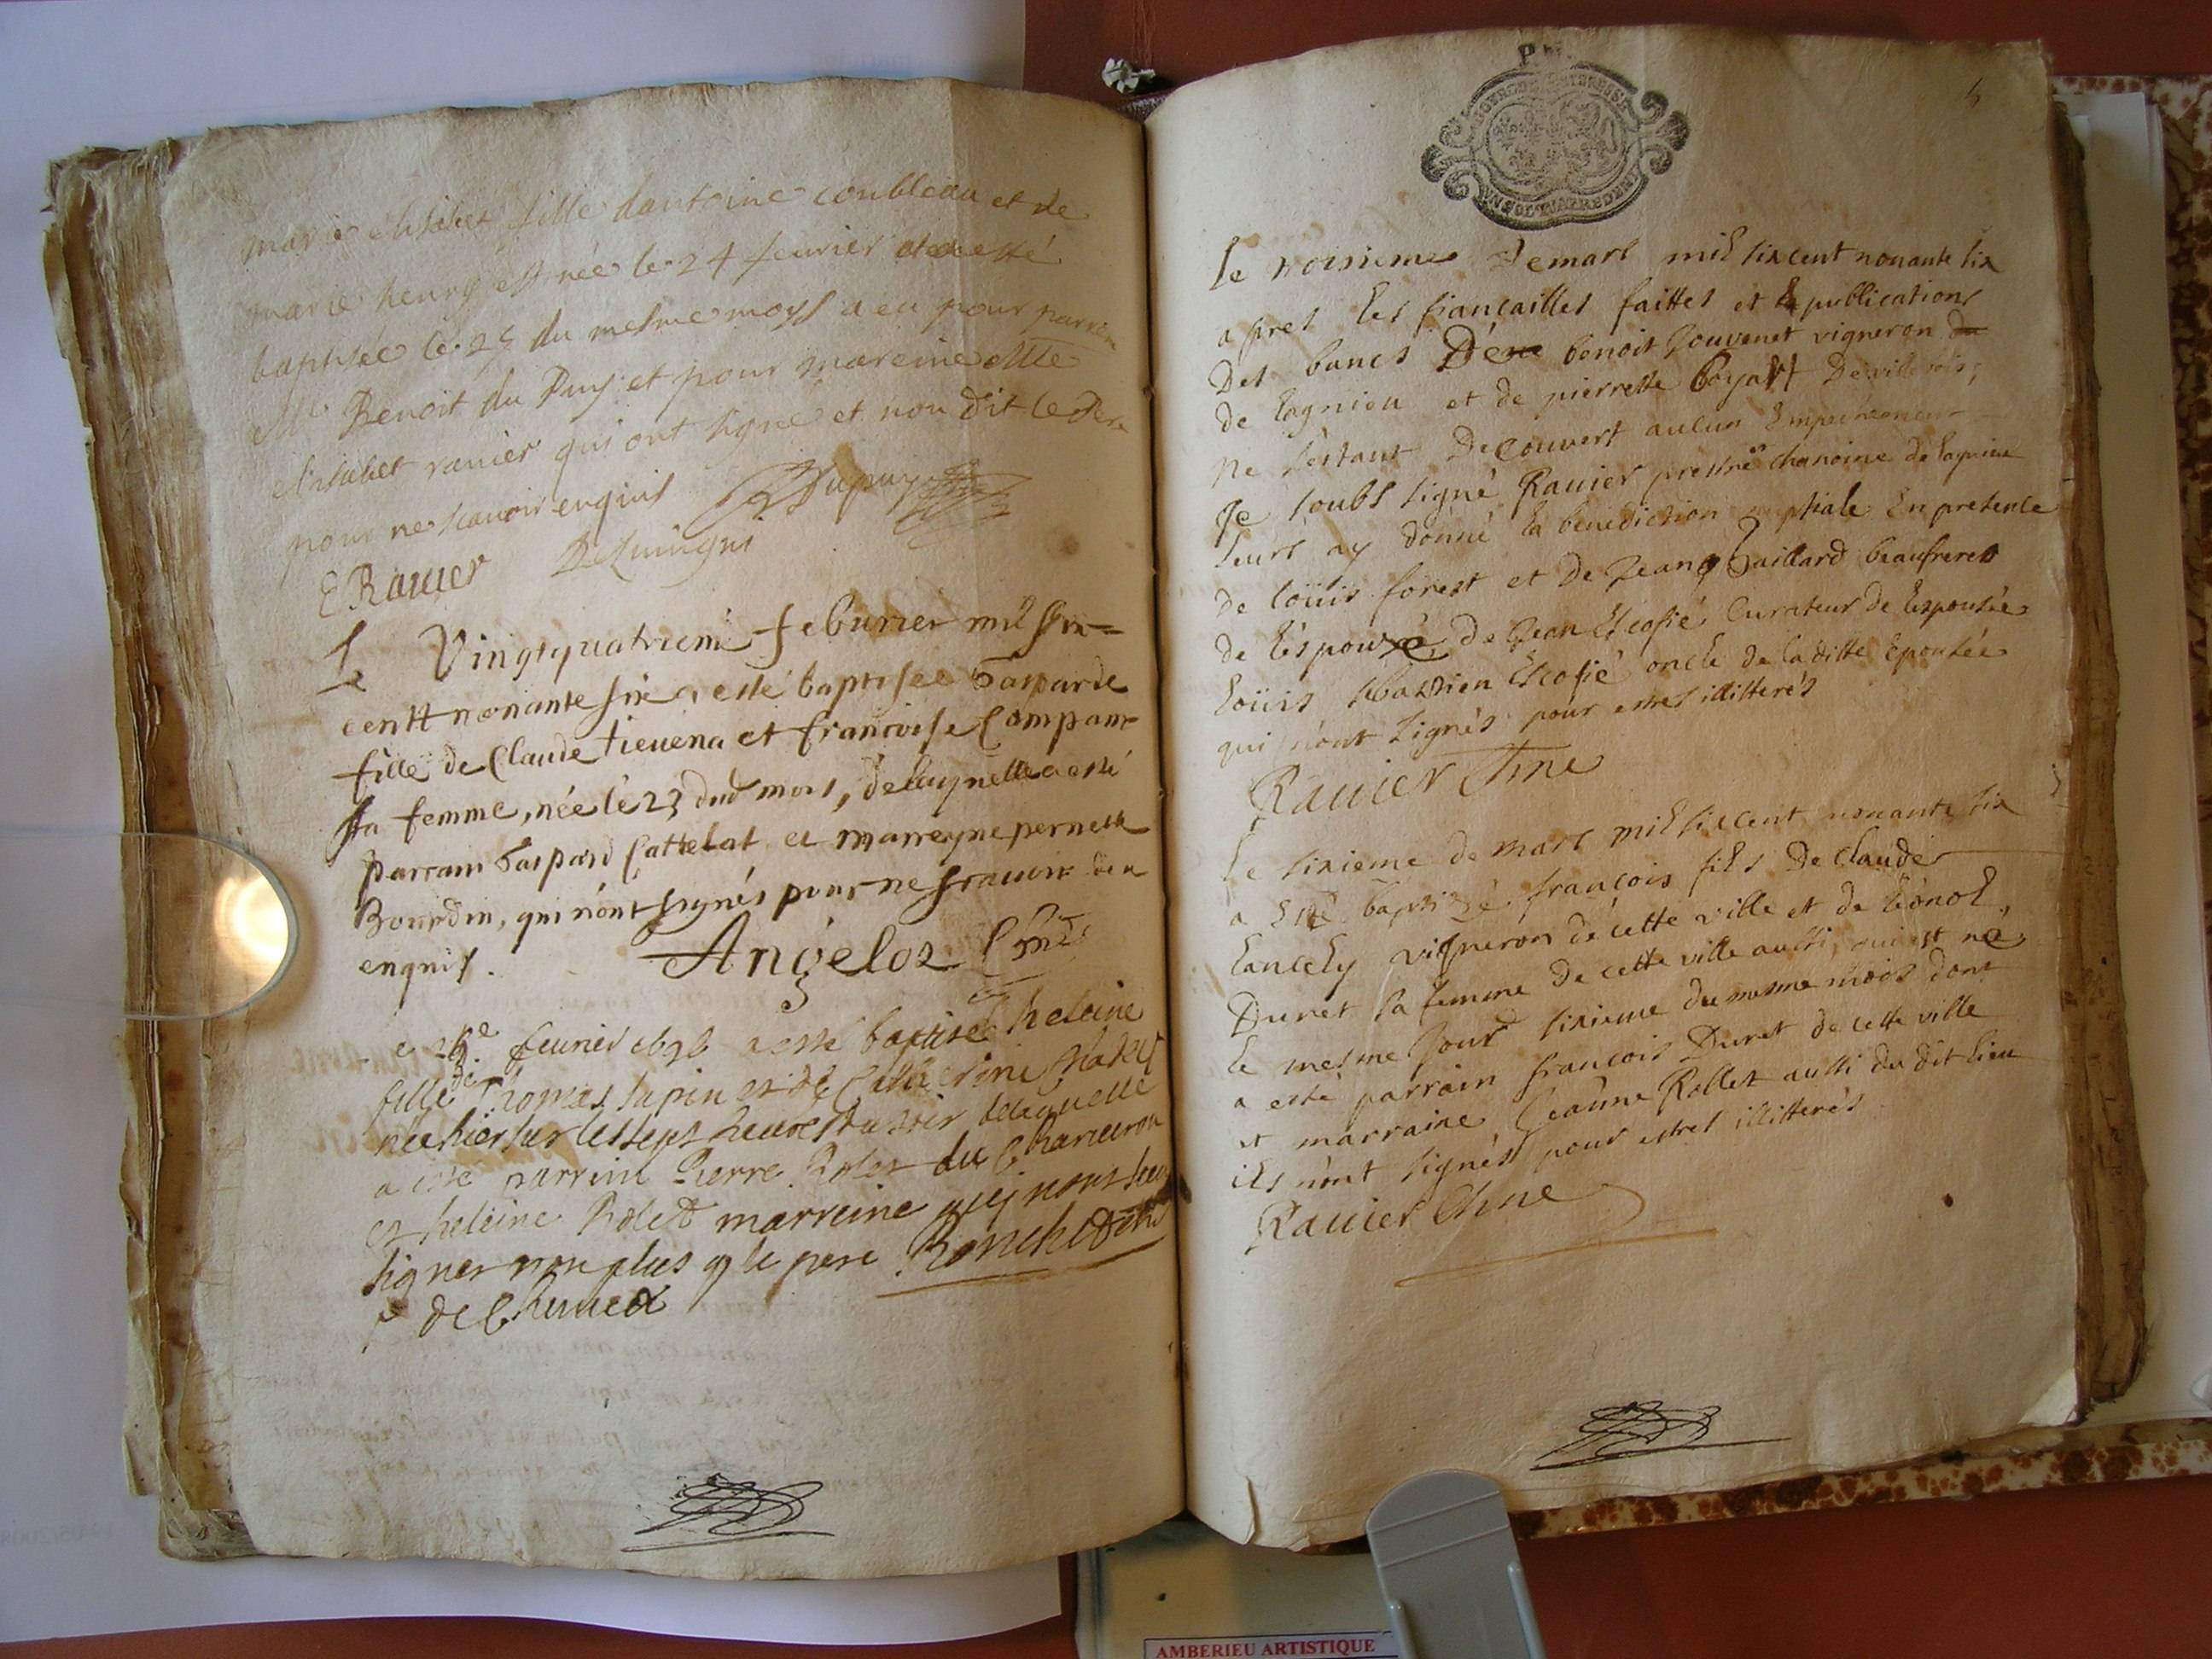 marie elisabet fille dantoine coubleau et de
marie henry est née le 24 feurier et a esté
baptisée le 25 du mesme moys a eu pour parrin
Mr Benoit du Puy et pour mareine Mlle
elisabet rauier qui ont signé et non dit le Pere
pour ne scauoir enquis Dupuy
E Rauier
Le Vingtquatrieme feburier mil six=
centt nonante six a esté baptisée Gasparde
fille de Claude tieuena et francoise Compain
sa femme, née le 23 dud mois, de laquelle a esté
parrain Gaspard Cattelat et marreyne pernette
Bourdin, qui n'ont signés pour ne scauoir de ce
enquis. Angelos
feurier 1696 a esté baptisée heleine
fille de Thomas lupin et de Catherine
nee hier sur les sept heures du soir de laquelle
a esté parrein Pierre Rolet du Charueron
et heleine Rolet marreine qui n'ont sceu
signer non plus q le pere Ronchet
P
5
le troisieme de mars mil six cent nonante six
apres les fiancailles faittes et la publications
Des bancs De benoit Jouuenet vigneron du
de lagnieu et de pierrette Boyat De villebois,
ne s'estant Decouvert aucun Empechement
Je soubs signé Rauier prestre chanoine de lagnieu
leurs ay donné la benediction nuptiale En presence
de loüis forest et de Jean Gaillard beaufreres
de l'espouxé, de Jean Escofié Curateur de l'espousée
loüis sebastien Escofié oncle de la ditte Epousée
qui n'ont signés pour estres illitterés
Rauier Chne
le sixieme de mars mil six cent nonante six
a Esté baptizé françois fils De claude
lancely vigneron de cette ville et de leonor
Duret sa femme de cette ville aussi, qui est né
le mesme jour sixieme du mesme mois dont
a esté parrain francois Duret de cette ville
et marraine Jeanne Rollet aussi du dit lieu
ils n'ont signés pour estres illitterés
Rauier Chne
AMBERIEU ARTISTIQUE